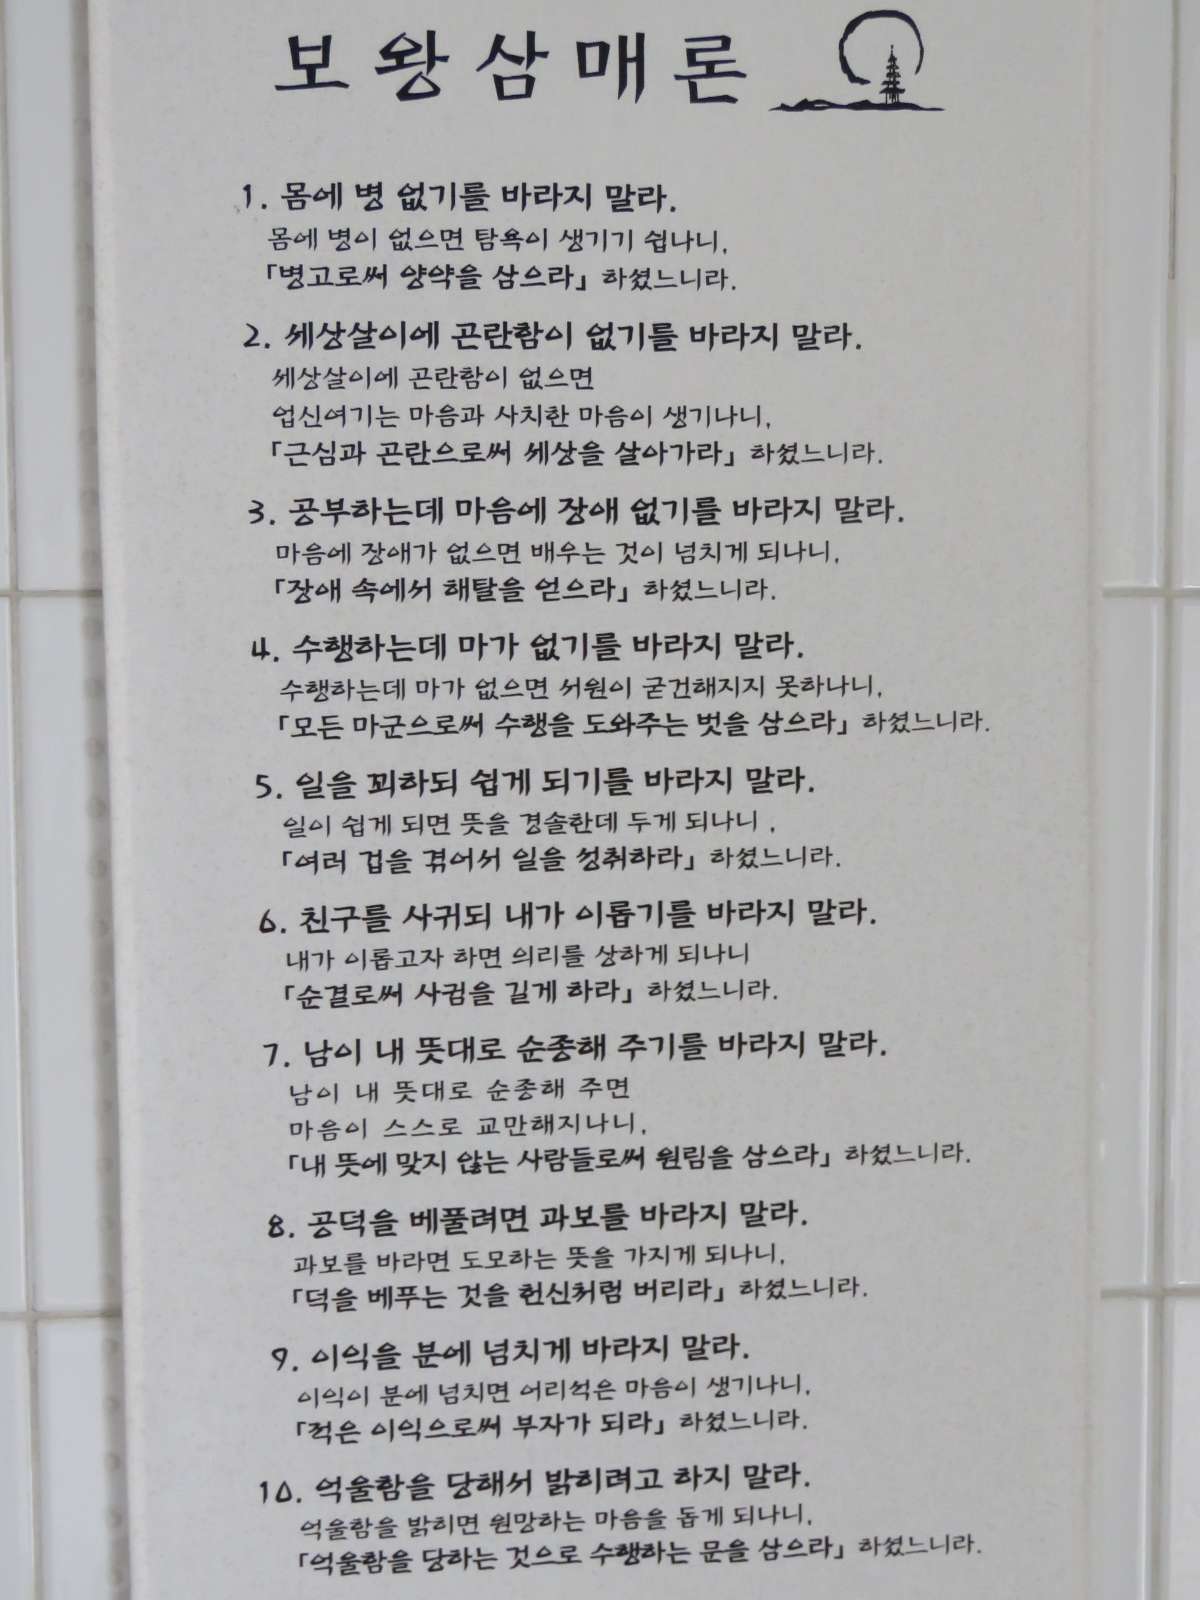 보왕삼매론
1. 몸에 병 없기를 바라지 말라.
몸에 병이 없으면 탐욕이 생기기 쉽나니,
「병고로써 양약을 삼으라」 하셨느니라.
2. 세상살이에 곤란함이 없기를 바라지 말라.
세상살이에 곤란함이 없으면
업신여기는 마음과 사치한 마음이 생기나니,
「근심과 곤란으로써 세상을 살아가라」 하셨느니라.
3. 공부하는데 마음에 장애 없기를 바라지 말라.
마음에 장애가 없으면 배우는 것이 넘치게 되나니,
「장애 속에서 해탈을 얻으라」 하셨느니라.
4. 수행하는데 마가 없기를 바라지 말라.
수행하는데 마가 없으면 서원이 굳건해지지 못하나니,
「모든 마군으로써 수행을 도와주는 벗을 삼으라」 하셨느니라.
5. 일을 꾀하되 쉽게 되기를 바라지 말라.
일이 쉽게 되면 뜻을 경솔한데 두게 되나니,
「여러 겁을 겪어서 일을 성취하라」 하셨느니라.
6. 친구를 사귀되 내가 이롭기를 바라지 말라.
내가 이롭고자 하면 의리를 상하게 되나니
「순결로써 사귐을 길게 하라」 하셨느니라.
7. 남이 내 뜻대로 순종해 주기를 바라지 말라.
남이 내 뜻대로 순종해 주면
마음이 스스로 교만해지나니,
「내 뜻에 맞지 않는 사람들로써 원림을 삼으라」 하셨느니라.
8. 공덕을 베풀려면 과보를 바라지 말라.
과보를 바라면 도모하는 뜻을 가지게 되나니,
「덕을 베푸는 것을 헌신처럼 버리라」 하셨느니라.
9. 이익을 분에 넘치게 바라지 말라.
이익이 분에 넘치면 어리석은 마음이 생기나니,
「적은 이익으로써 부자가 되라」 하셨느니라.
10. 억울함을 당해서 밝히려고 하지 말라.
억울함을 밝히면 원망하는 마음을 돕게 되나니,
「억울함을 당하는 것으로 수행하는 문을 삼으라」 하셨느니라.